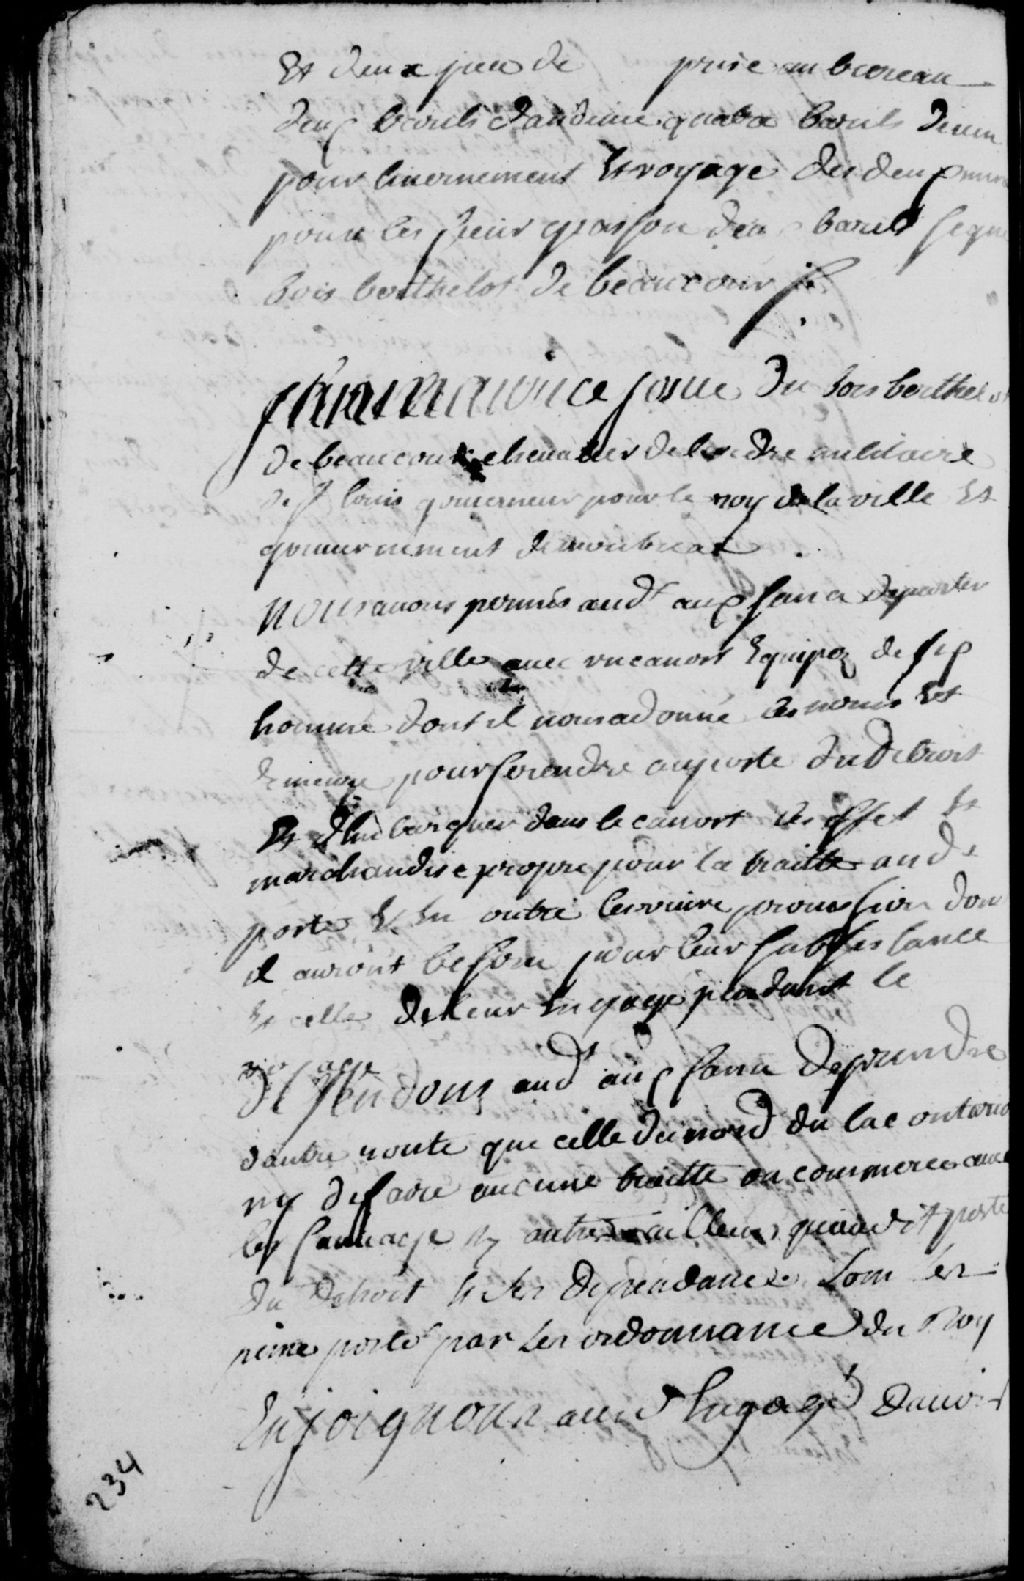 Et deux jeu de prise au bureau
deux barils d'audevie quatre barils de vin
pour livernement Et voyage des deux
pour les sieur
bois berthelot de beaucour
Jean maurice josue du bois berthelot
de beaucour chevallier de lordre militaire
de St louis gouverneur pour le roy de la ville Et
gouvernement de montreal
Nous avons permis audt aux sera de partir
de cette ville avec un canot Equipez de six
homme dont il nous a donné les noms Et
demeure pour se rendre au poste du Detroit
Et dembarquer dans le canot les effet Et
marchandise propre pour la traitte aud
poste Et En outre les vivre provission dont
il auront besoin pour leur subsistance
Et celle de leur Engage pendant le
voyage
Deffendons audt aux sera de prendre
dautre route que celle du nord du lac ontario
ny de faire aucune traitte ou commerce avec
les sauvage ny autre ailleurs quaudit poste
du Detroit Et ses dependance sous les
peine porté par les ordonnance du Roy
Enjoignons aud Engagé davoir
234